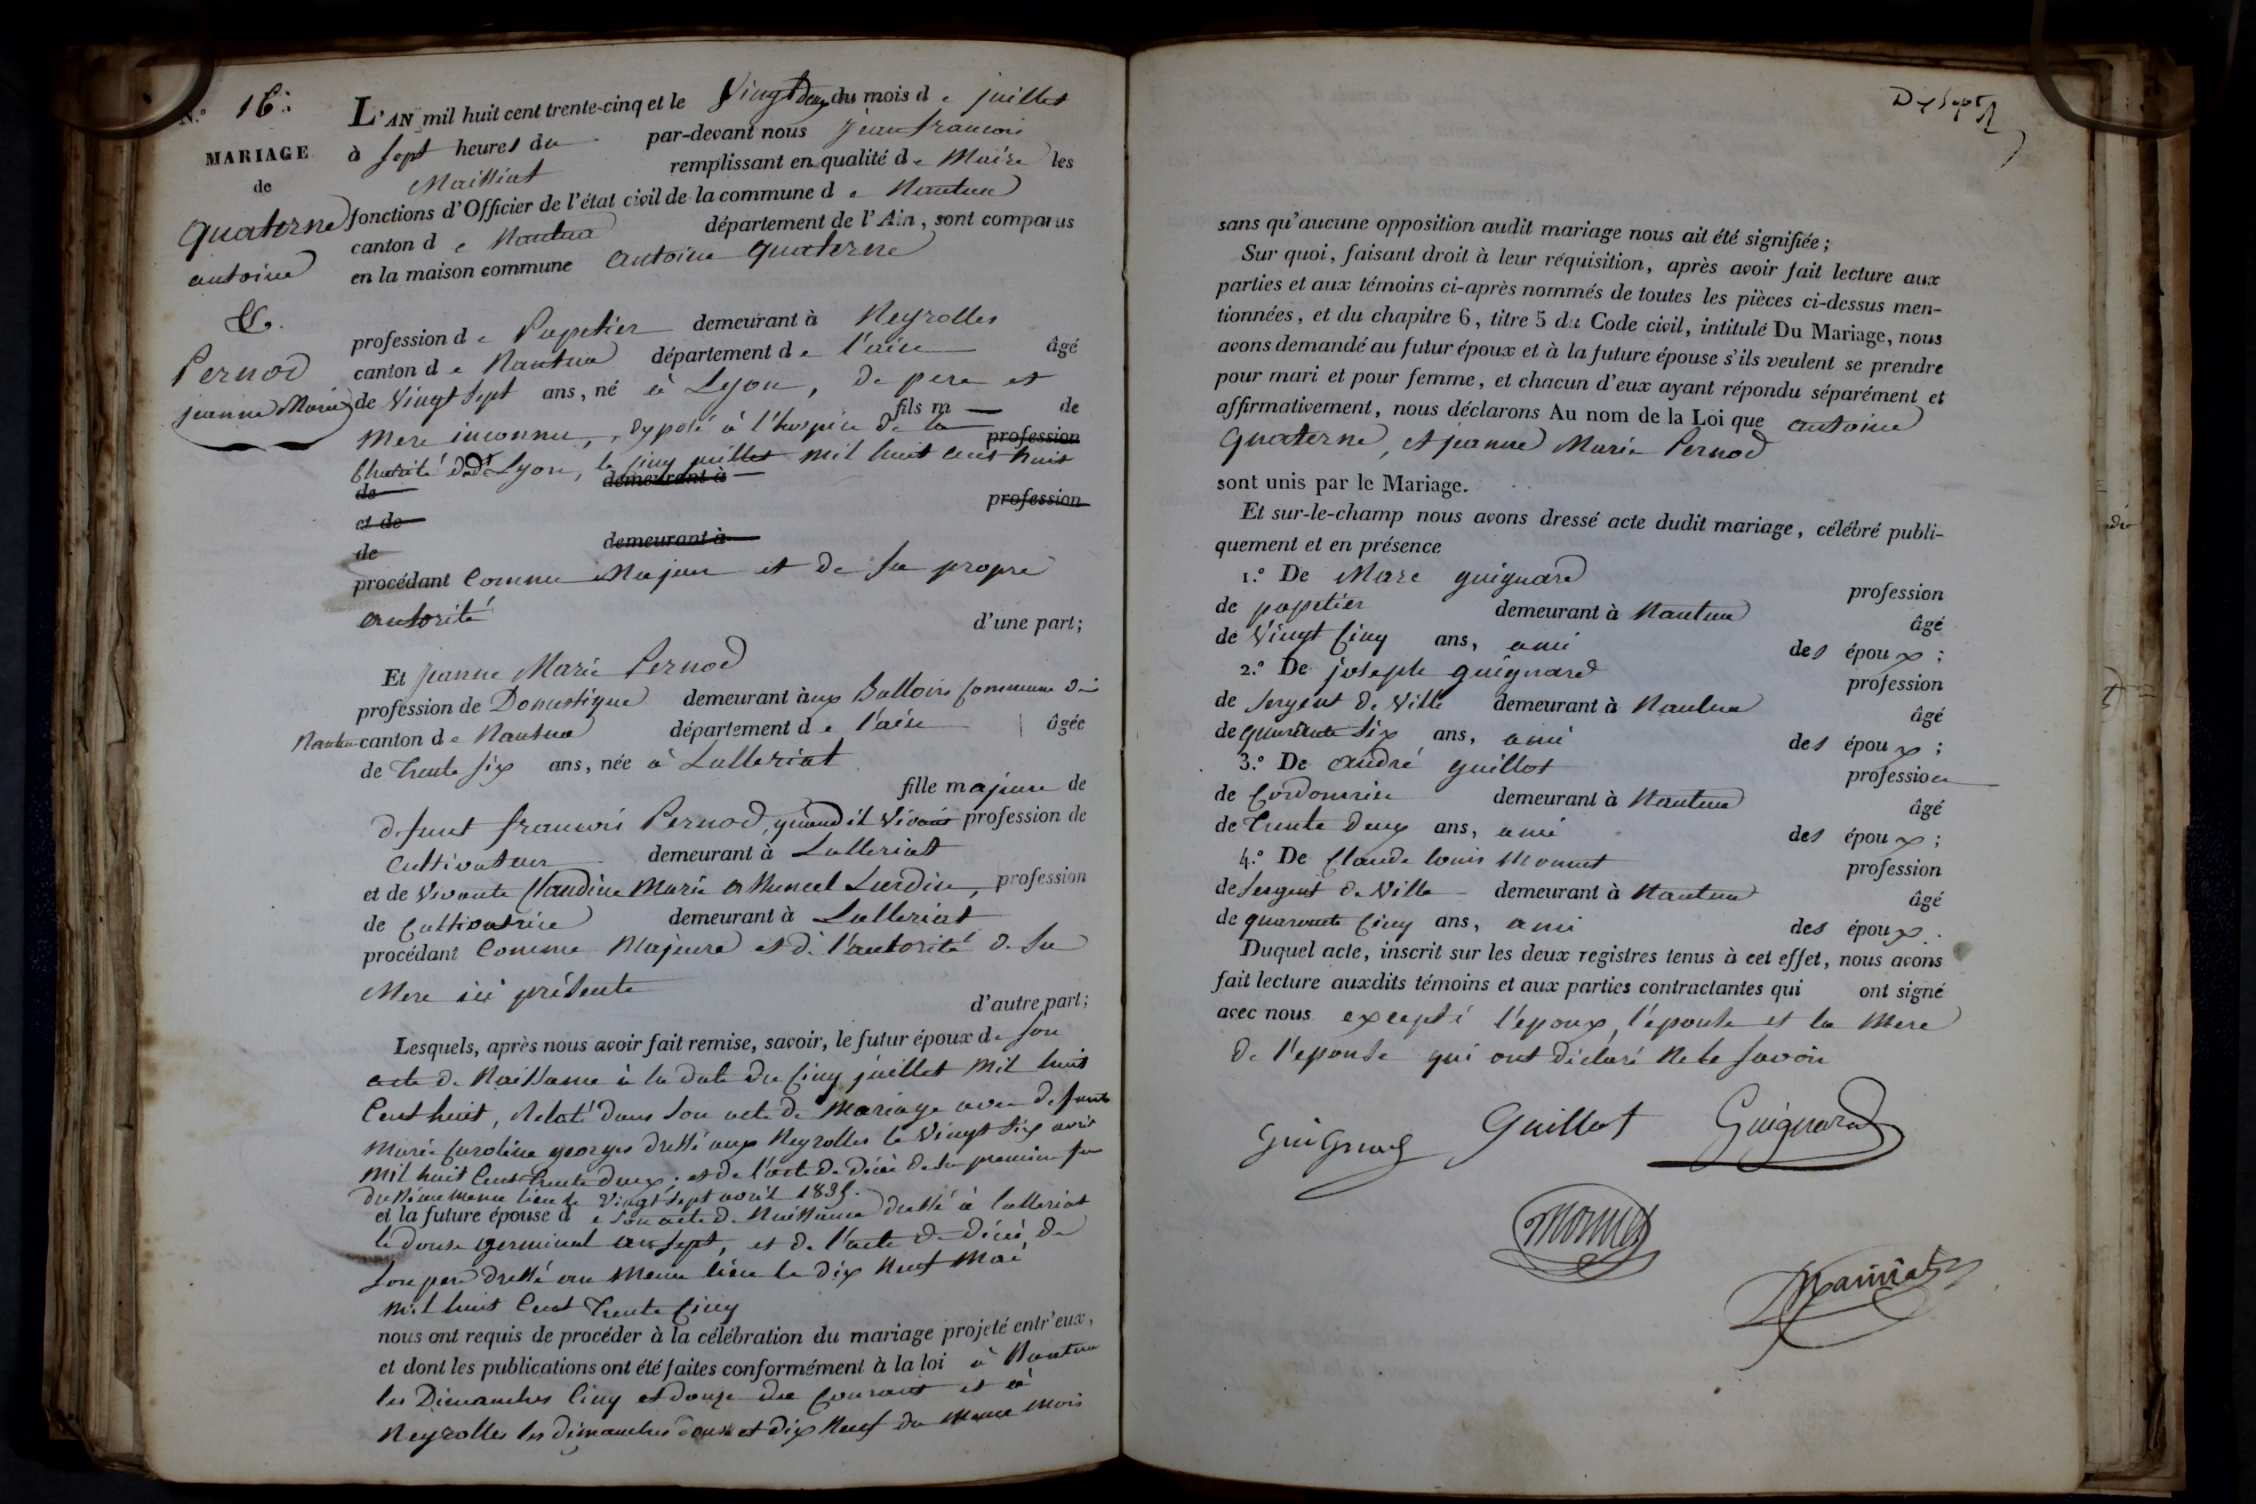 N.° 16.
MARIAGE
de
quaterne
antoine
&.
Pernod
jeanne Marie
L'AN mil huit cent trente-cinq et le Vingt deux du mois de juillet
à sept heures du par-devant nous jean francois
Mailliat remplissant en qualité de Maire les
fonctions d'Officier de l'état civil de la commune de Nantua
canton de Nantua département de l'Ain, sont comparus
en la maison commune antoine quaterne
profession de Papetier demeurant à Neyrolles
canton de Nantua département de l'ain âgé
de Vingt sept ans, né à Lyon, de pere et
fils m de
mere inconnu, exposé à l'hospice de la
profession
Charité de Lyon, le cinq juillet mil huit cent huit
de demeurant à
et de profession
de demeurant à
procédant comme Majeur et de sa propre
autorité d'une part;
Et Jeanne Marie Pernod
profession de Domestique demeurant aux Battoirs commune de
Nantua canton de Nantua département de l'ain âgée
de trente six ans, née à Lalleriat
fille majeure de
defunt francois Pernod, quand il vivait profession de
cultivateur demeurant à Lalleriat
et de vivante Claudine Marie Lurdin, profession
de Cultivatrice demeurant à Lalleriat
procédant comme Majeure et de l'autorité de sa
Mere ici présente d'autre part;
Lesquels, après nous avoir fait remise, savoir, le futur époux de son
acte de Naissance à la date du cinq juillet mil huit
cent huit, relaté dans son acte de mariage avec defunte
Marie Caroline georges dressé aux Neyrolles le vingt six avril
mil huit cent trente deux; et de l'acte de décès de sa premiere fe
dressé au meme lieu le vingt sept avril 1835.
et la future épouse de son acte de Naissance dressé à lalleriat
le douze germinal an sept, et de l'acte de décès de
son pere dressé au Meme lieu le dix neuf Mai
mil huit cent trente cinq
nous ont requis de procéder à la célébration du mariage projeté entr'eux,
et dont les publications ont été faites conformément à la loi à Nantua
les Dimanches cinq et douze du courant et à
Neyrolles les dimanches douze et dix Neuf du meme mois
Dix sept
sans qu'aucune opposition audit mariage nous ait été signifiée;
Sur quoi, faisant droit à leur réquisition, après avoir fait lecture aux
parties et aux témoins ci-après nommés de toutes les pièces ci-dessus men-
tionnées, et du chapitre 6, titre 5 du Code civil, intitulé Du Mariage, nous
avons demandé au futur époux et à la future épouse s'ils veulent se prendre
pour mari et pour femme, et chacun d'eux ayant répondu séparément et
affirmativement, nous déclarons Au nom de la Loi que antoine
quaterne, et jeanne Marie Pernod
sont unis par le Mariage.
Et sur-le-champ nous avons dressé acte dudit mariage, célébré publi-
quement et en présence
1.° De Marc guignard profession
de papetier demeurant à Nantua âgé
de Vingt cinq ans, ami des époux;
2.° De joseph guignard profession
de sergent de ville demeurant à Nantua âgé
de quarante six ans, ami des époux;
3.° De andré guillot profession
de Cordonnier demeurant à Nantua âgé
de trente deux ans, ami des époux;
4.° De Claude louis Monnet profession
de sergent de ville demeurant à Nantua âgé
de quarante cinq ans, ami des époux.
Duquel acte, inscrit sur les deux registres tenus à cet effet, nous avons
fait lecture auxdits témoins et aux parties contractantes qui ont signé
avec nous excepté l'epoux, l'epouse et la Mere
de l'epouse qui ont déclaré ne le savoir
Guignard Guillot Guignard
Monnet
Mailliat